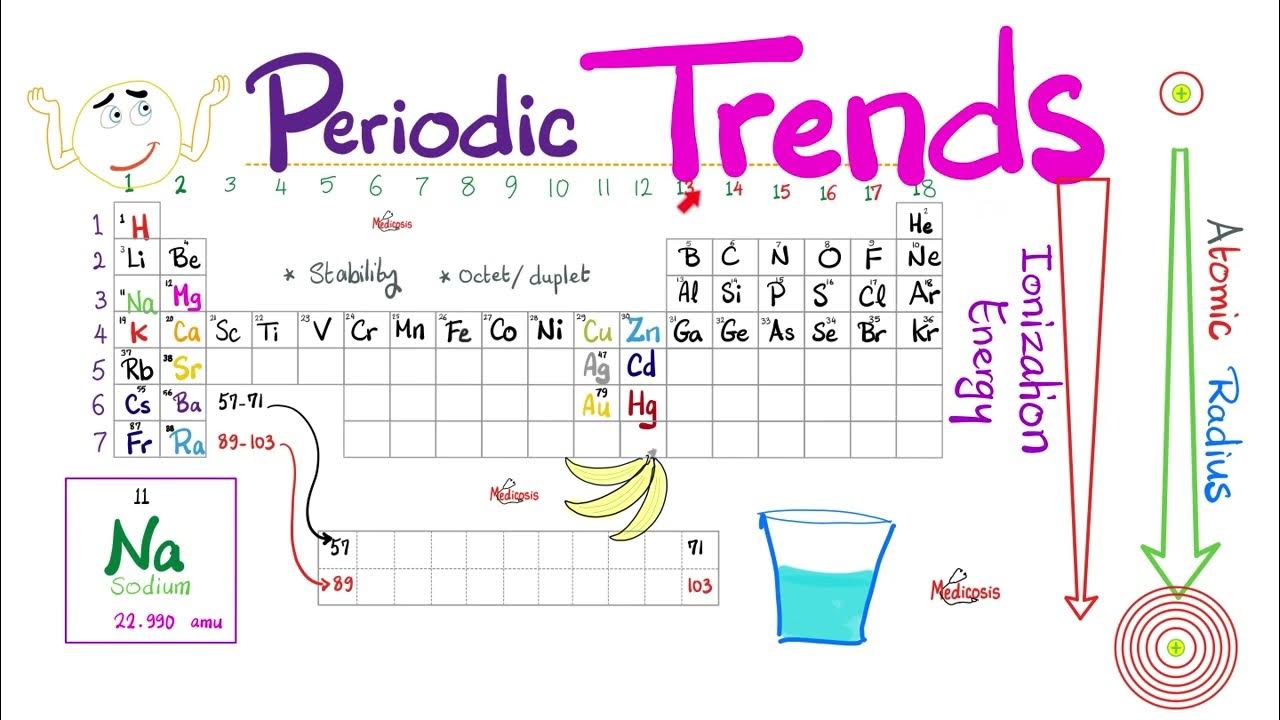 Periodic Trends
1 2 3 4 5 6 7 8 9 10 11 12 13 14 15 16 17 18
Medicosis
1 1 H 2 He
2 3 Li 4 Be 5 B 6 C 7 N 8 O 9 F 10 Ne
* Stability * Octet/duplet
3 11 Na 12 Mg 13 Al 14 Si 15 P 16 S 17 Cl 18 Ar
4 19 K 20 Ca 21 Sc 22 Ti 23 V 24 Cr 25 Mn 26 Fe 27 Co 28 Ni 29 Cu 30 Zn 31 Ga 32 Ge 33 As 34 Se 35 Br 36 Kr
5 37 Rb 38 Sr 47 Ag Cd
6 55 Cs 56 Ba 57-71 79 Au Hg
7 87 Fr 88 Ra 89-103
Ionization
Energy
Atomic Radius
11
Na
Sodium
22.990 amu
Medicosis
57 71
89 103
Medicosis
+
+